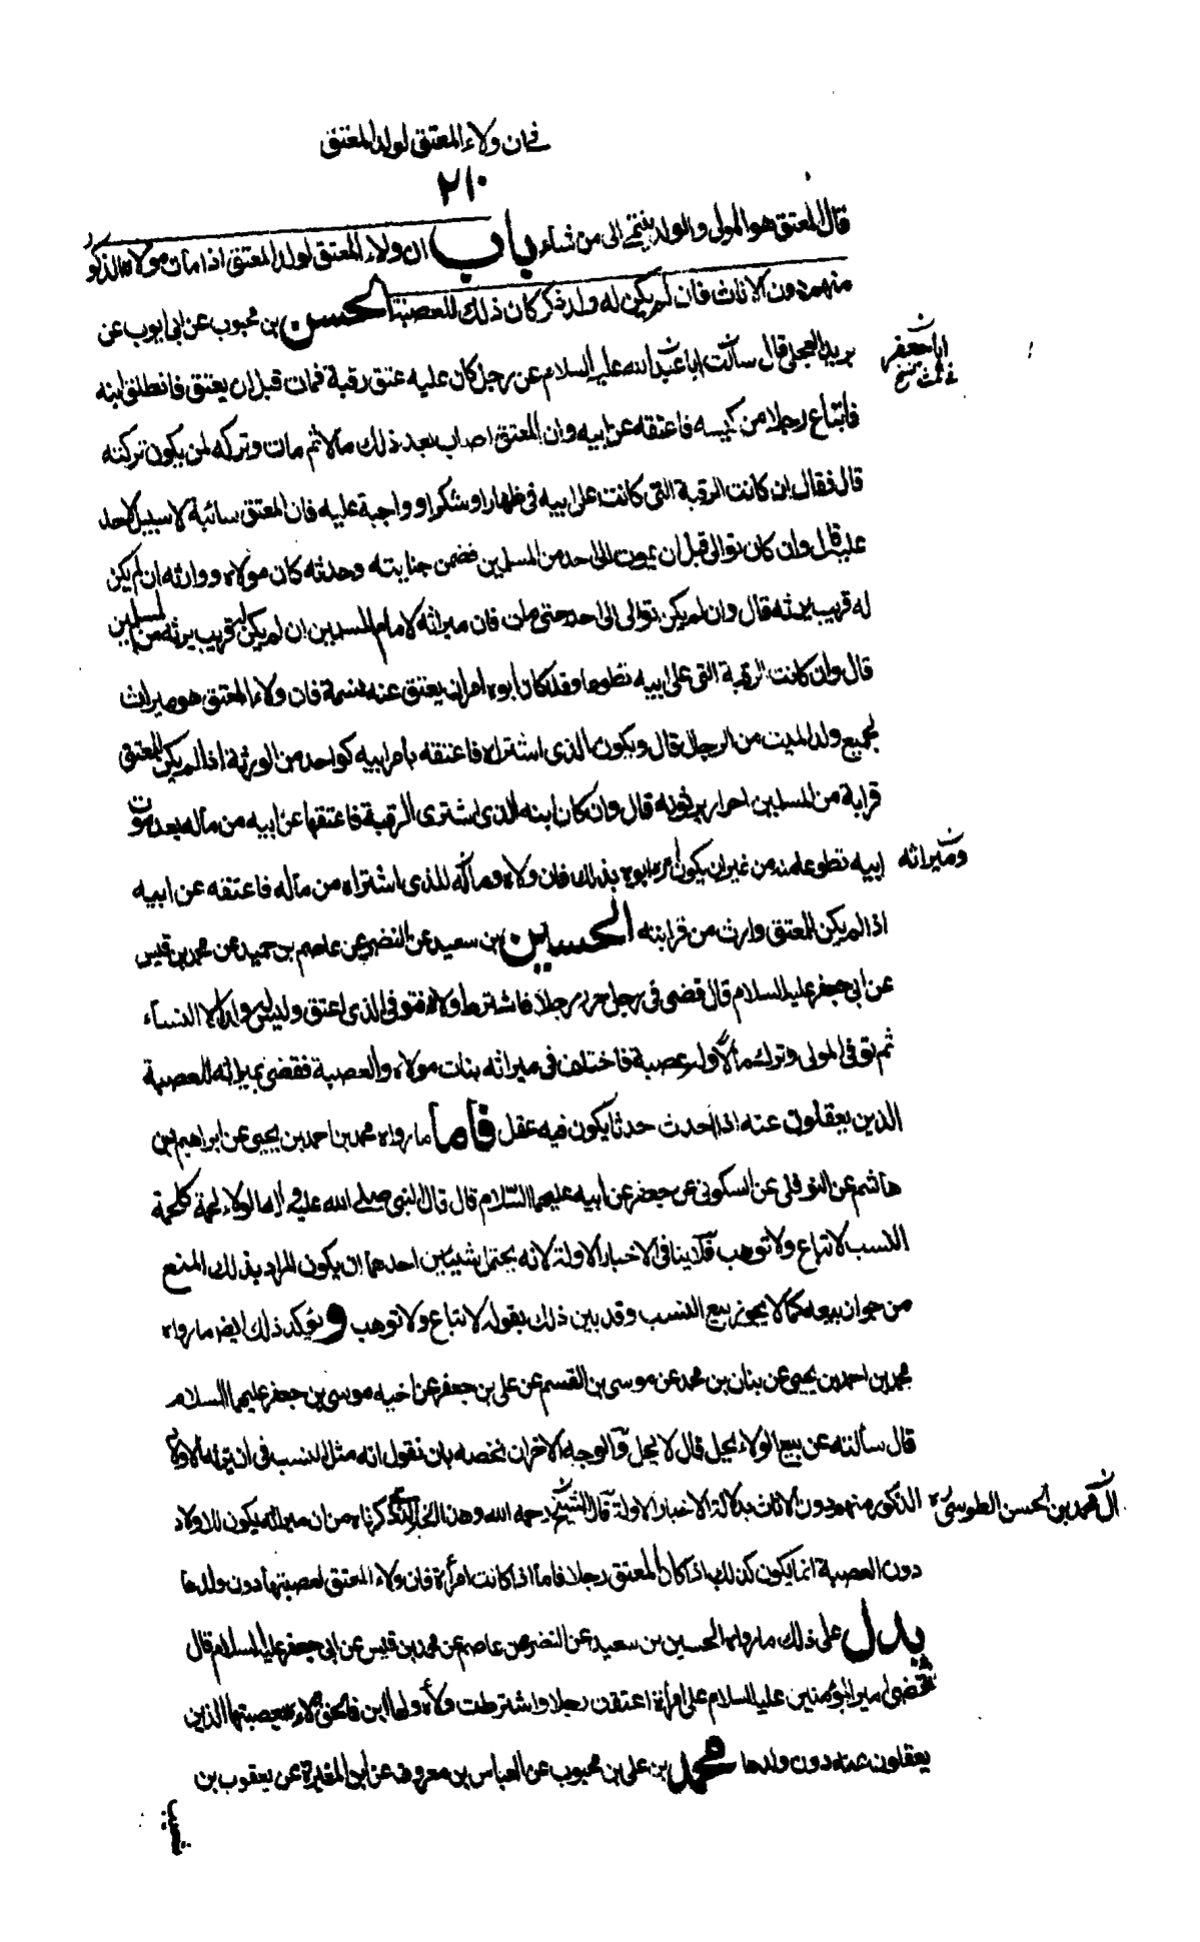 في ان ولاء المعتق لولد المعتق
٢١٠
قال المعتق هو المولى والولد ينتمي الى من شاء باب ان ولاء المعتق لولد المعتق اذا مات مولاه الذكور
منهم دون الاناث فان لم يكن له ولد ذكر كان ذلك للعصبة الحسن بن محبوب عن ابى ايوب عن
بريد العجلى قال سألت ابا عبد الله عليه السلام عن رجل كان عليه عتق رقبة فمات قبل ان يعتق فانطلق ابنه
ابا جعفر
فابتاع رجلا من كيسه فاعتقه عن ابيه وان المعتق اصاب بعد ذلك مالا ثم مات وتركه لمن يكون تركته
قال فقال ان كانت الرقبة التى كانت على ابيه فى ظهار او شكر او واجبة عليه فان المعتق سائبة لا سبيل لاحد
عليه قال وان كان توالى قبل ان يموت الى احد من المسلمين فضمن جنايته وحدثه كان مولاه ووارثه ان لم يكن
له قريب يرثه قال وان لم يكن توالى الى احد حتى مات فان ميراثه لامام المسلمين ان لم يكن له قريب يرثه من المسلمين
قال وان كانت الرقبة التى على ابيه تطوعا وقد كان ابوه امره ان يعتق عنه نسمة فان ولاء المعتق هو ميراث
لجميع ولد الميت من الرجال قال ويكون الذى اشتراه فاعتقه بامر ابيه كواحد من الورثة اذا لم يكن للمعتق
قرابة من المسلمين احرار يرثونه قال وان كان ابنه الذى اشترى الرقبة فاعتقها عن ابيه من ماله بعد موت
ابيه تطوعا منه من غير ان يكون امره ابوه بذلك فان ولاه وماله للذى اشتراه من ماله فاعتقه عن ابيه
وميراثه
اذا لم يكن للمعتق وارث من قرابته الحسين بن سعيد عن النضر عن عاصم بن حميد عن محمد بن قيس
عن ابى جعفر عليه السلام قال قضى فى رجل حرر رجلا فاشترط ولاه فتوفى الذى اعتق وليس له ولد الا النساء
ثم توفى المولى وترك مالا وله عصبة فاختلف فى ميراثه بنات مولاه والعصبة فقضى بميراثه للعصبة
الذين يعقلون عنه اذا احدث حدثا يكون فيه عقل فاما ما رواه محمد بن احمد بن يحيى عن ابراهيم بن
هاشم عن النوفلى عن السكونى عن جعفر عن ابيه عليهما السلام قال قال النبى صلى الله عليه واله الولاء لحمة كلحمة
النسب لا تباع ولا توهب فلا ينافى الاخبار الاولة لانه يحتمل شيئين احدهما ان يكون المراد بذلك المنع
من جواز بيعه كما لا يجوز بيع النسب وقد بين ذلك بقوله لا تباع ولا توهب و يؤكد ذلك ايضا ما رواه
محمد بن احمد بن يحيى عن بنان بن محمد عن موسى بن القسم عن على بن جعفر عن اخيه موسى بن جعفر عليهما السلام
قال سألته عن بيع الولاء يحل قال لا يحل والوجه الاخر ان نخصه بان نقول انه مثل النسب فى ان يرثه الاولاد
الذكور منهم دون الاناث بدلالة الاخبار الاولة قال الشيخ رحمه الله وهذا الذى ذكرناه من ان ميراثه يكون للاولاد
محمد بن الحسن الطوسى ره
دون العصبة انما يكون كذلك اذا كان المعتق رجلا فاما اذا كانت امرأة فان ولاء المعتق لعصبتها دون ولدها
يدل على ذلك ما رواه الحسين بن سعيد عن النضر عن عاصم عن محمد بن قيس عن ابى جعفر عليه السلام قال
قضى امير المؤمنين عليه السلام على امرأة اعتقت رجلا واشترطت ولاه ولها ابن فالحق ولاءه بعصبتها الذين
يعقلون عنه دون ولدها محمد بن على بن محبوب عن العباس بن معروف عن ابن المغيرة عن يعقوب بن